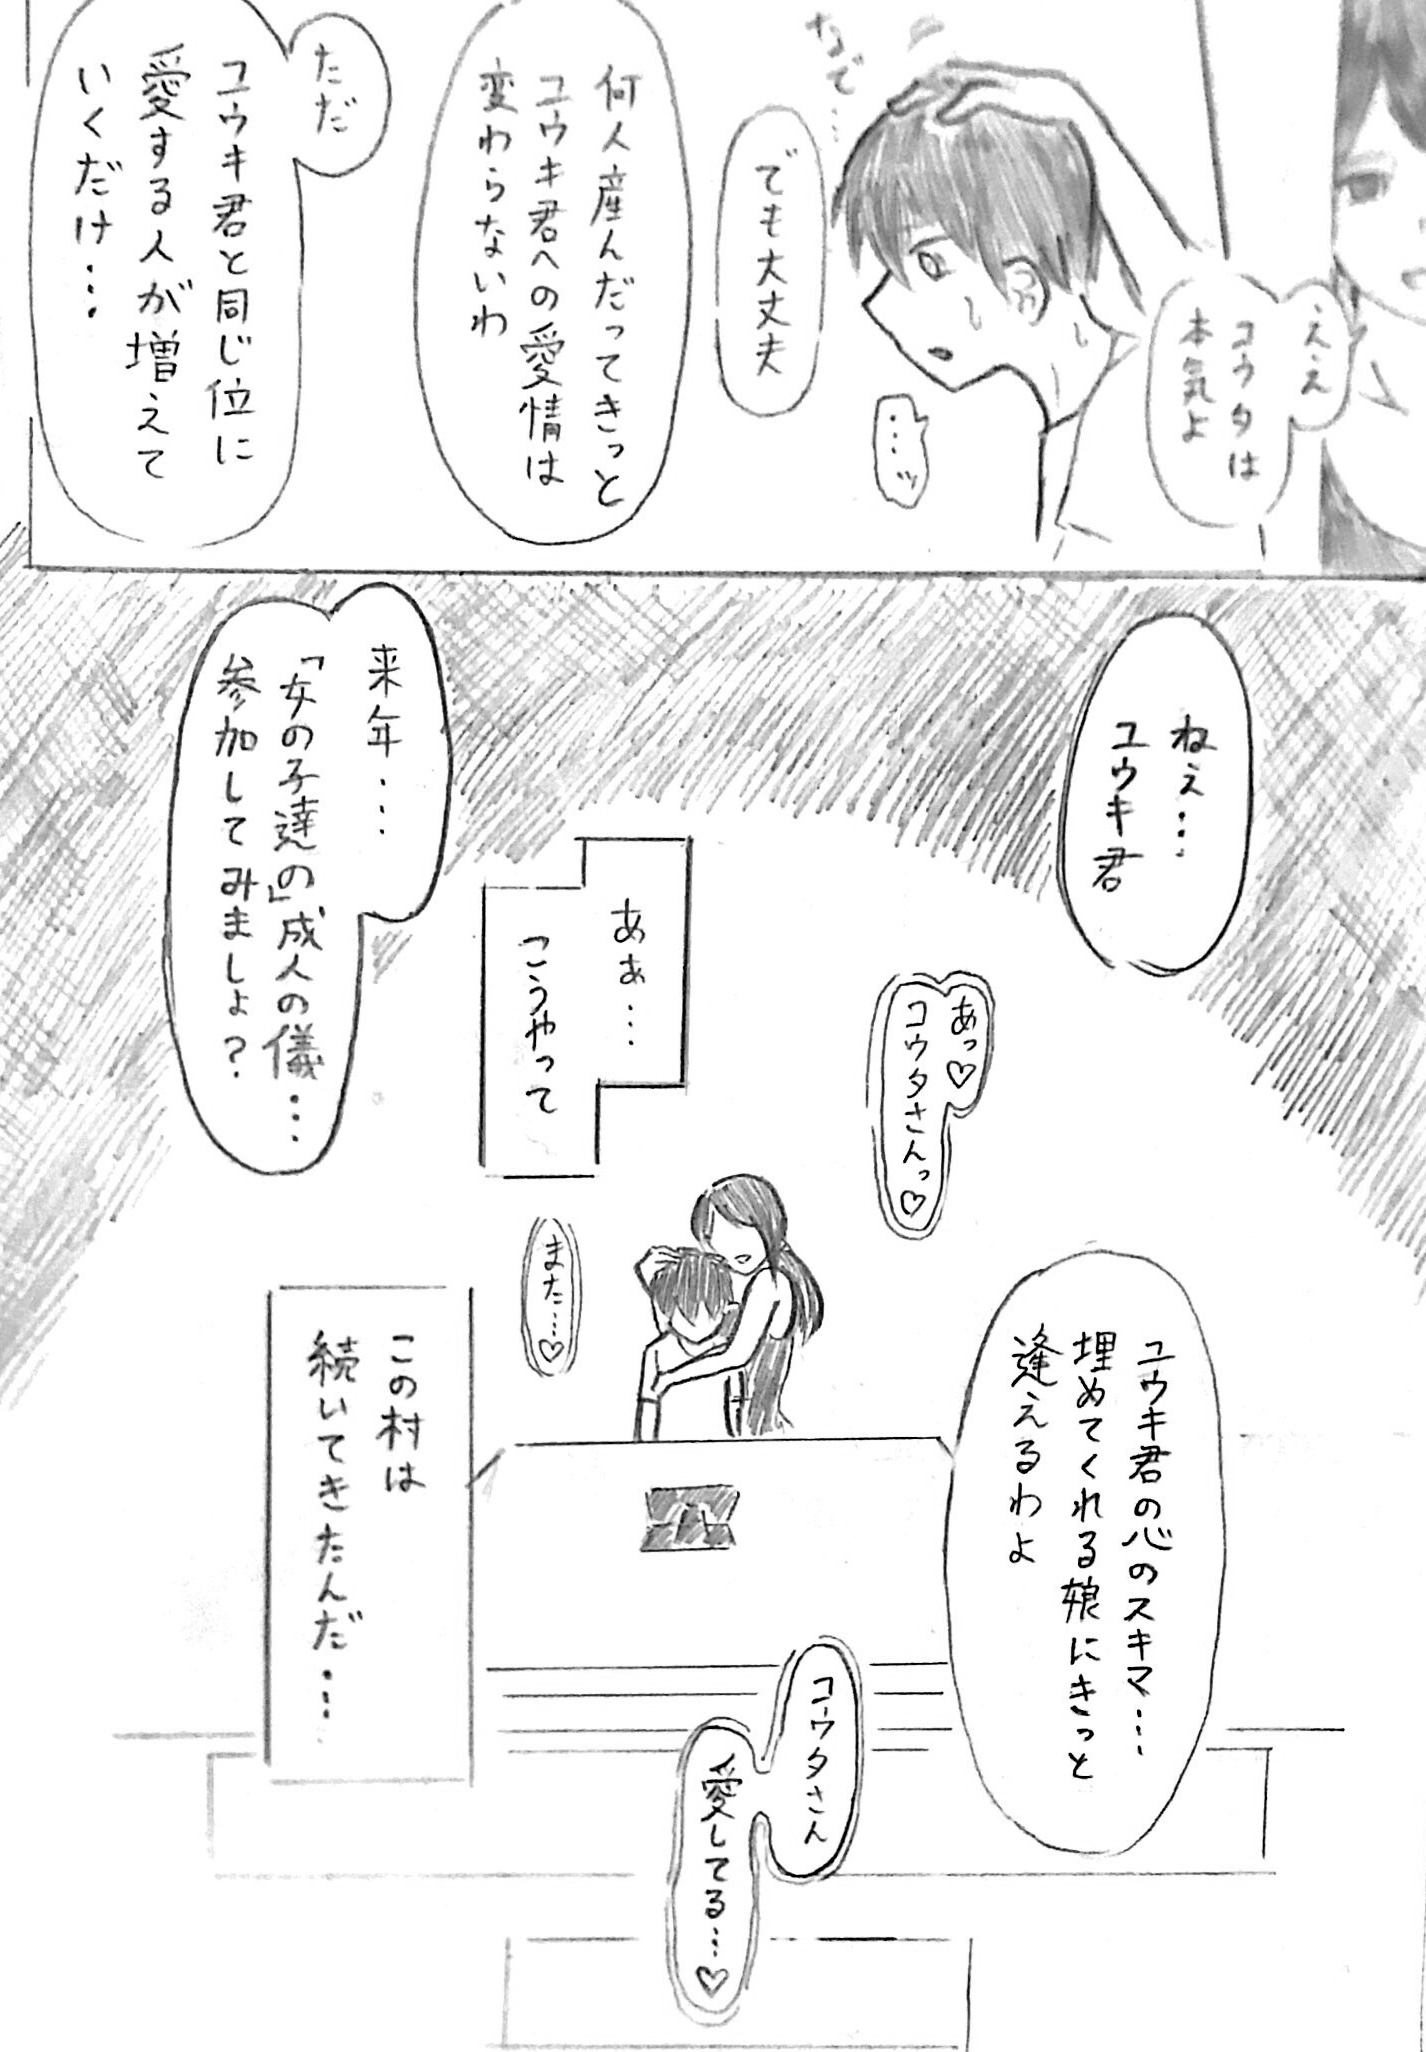 ええ
コウタは
本気よ
なで…
…ッ
でも大丈夫
何人産んだってきっと
ユウキ君への愛情は
変わらないわ
ただ
ユウキ君と同じ位に
愛する人が増えて
いくだけ…
ねぇ…
ユウキ君
来年…
「女の子達の」成人の儀…
参加してみましょ?
あっ♡
コウタさんっ♡
あぁ…
こうやって
また…♡
ユウキ君の心のスキマ…
埋めてくれる娘にきっと
逢えるわよ
この村は
続いてきたんだ…
コウタさん
愛してる…♡